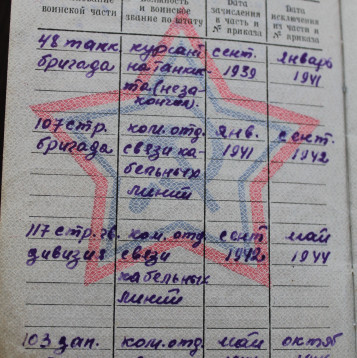 воинской части
и воинское звание по штату
Дата зачисления в часть и № приказа
Дата исключения из части и № приказа
48 танк. бригада
курсант на танкис-та (неза-кончен).
сент. 1939
январь 1941
107 стр. бригада
ком. отд. связи ка-бельных линий
янв. 1941
сент. 1942
117 стр. гв. дивизия
ком. отд. связи кабельных линий
сент 1942г
май 1944
103 зап.
ком. отд.
май
октяб